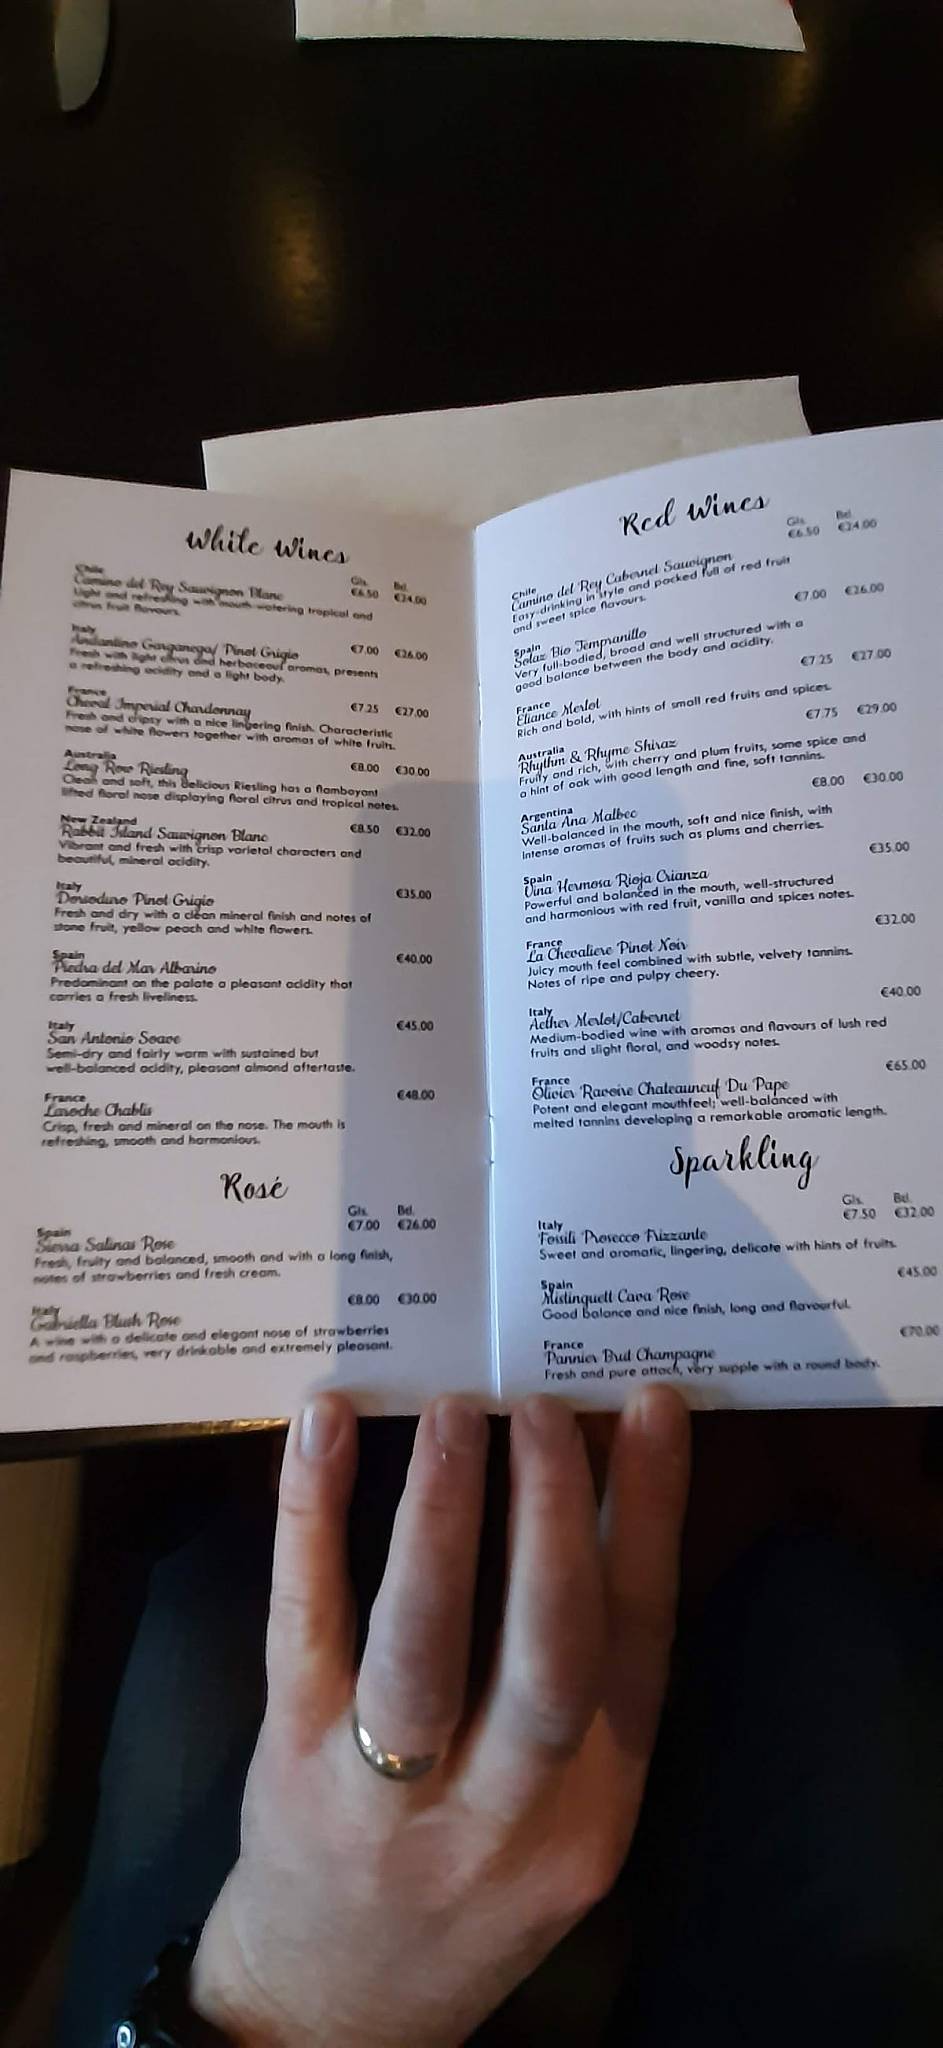 White Wines
Gls. Btl.
Chile
Camino del Rey Sauvignon Blanc €6.50 €24.00
Light and refreshing with mouth-watering tropical and
citrus fruit flavours.
Italy
Andantino Garganega/ Pinot Grigio €7.00 €26.00
Fresh with light citrus and herbaceous aromas, presents
a refreshing acidity and a light body.
France
Cheval Imperial Chardonnay €7.25 €27.00
Fresh and cripsy with a nice lingering finish. Characteristic
nose of white flowers together with aromas of white fruits.
Australia
Long Row Riesling €8.00 €30.00
Clean and soft, this delicious Riesling has a flamboyant
lifted floral nose displaying floral citrus and tropical notes.
New Zealand
Rabbit Island Sauvignon Blanc €8.50 €32.00
Vibrant and fresh with crisp varietal characters and
beautiful, mineral acidity.
Italy
Dorsoduro Pinot Grigio €35.00
Fresh and dry with a clean mineral finish and notes of
stone fruit, yellow peach and white flowers.
Spain
Piedra del Mar Albarino €40.00
Predominant on the palate a pleasant acidity that
carries a fresh liveliness.
Italy
San Antonio Soave €45.00
Semi-dry and fairly warm with sustained but
well-balanced acidity, pleasant almond aftertaste.
France
Laroche Chablis €48.00
Crisp, fresh and mineral on the nose. The mouth is
refreshing, smooth and harmonious.
Rosé
Gls. Btl.
Spain €7.00 €26.00
Sierra Salinas Rose
Fresh, fruity and balanced, smooth and with a long finish,
notes of strawberries and fresh cream.
Italy €8.00 €30.00
Gabriella Blush Rose
A wine with a delicate and elegant nose of strawberries
and raspberries, very drinkable and extremely pleasant.
Red Wines
Gls. Btl.
€6.50 €24.00
Chile
Camino del Rey Cabernet Sauvignon
Easy-drinking in style and packed full of red fruit
and sweet spice flavours.
€7.00 €26.00
Spain
Solaz Bio Tempranillo
Very full-bodied, broad and well structured with a
good balance between the body and acidity.
€7.25 €27.00
France
Eliance Merlot
Rich and bold, with hints of small red fruits and spices.
€7.75 €29.00
Australia
Rhythm & Rhyme Shiraz
Fruity and rich, with cherry and plum fruits, some spice and
a hint of oak with good length and fine, soft tannins.
€8.00 €30.00
Argentina
Santa Ana Malbec
Well-balanced in the mouth, soft and nice finish, with
intense aromas of fruits such as plums and cherries.
€35.00
Spain
Vina Hermosa Rioja Crianza
Powerful and balanced in the mouth, well-structured
and harmonious with red fruit, vanilla and spices notes.
€32.00
France
La Chevaliere Pinot Noir
Juicy mouth feel combined with subtle, velvety tannins.
Notes of ripe and pulpy cheery.
€40.00
Italy
Aether Merlot/Cabernet
Medium-bodied wine with aromas and flavours of lush red
fruits and slight floral, and woodsy notes.
€65.00
France
Olivier Ravoire Chateauneuf Du Pape
Potent and elegant mouthfeel; well-balanced with
melted tannins developing a remarkable aromatic length.
Sparkling
Gls. Btl.
€7.50 €32.00
Italy
Fossili Prosecco Frizzante
Sweet and aromatic, lingering, delicate with hints of fruits.
€45.00
Spain
Mistinguett Cava Rose
Good balance and nice finish, long and flavourful.
€70.00
France
Pannier Brut Champagne
Fresh and pure attach, very supple with a round body.